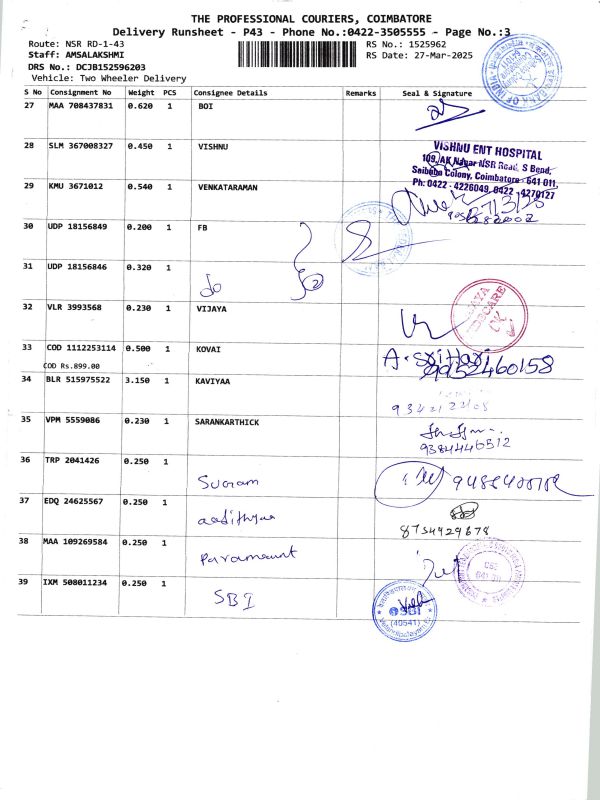 THE PROFESSIONAL COURIERS, COIMBATORE
Delivery Runsheet - P43 - Phone No.:0422-3505555 - Page No.:3
Route: NSR RD-1-43
RS No.: 1525962
Staff: AMSALAKSHMI
RS Date: 27-Mar-2025
DRS No.: DCJB152596203
Vehicle: Two Wheeler Delivery
BANK OF INDIA
S No Consignment No Weight PCS Consignee Details Remarks Seal & Signature
27 MAA 708437831 0.620 1 BOI
28 SLM 367008327 0.450 1 VISHNU
VISHNU ENT HOSPITAL
109, AK Nagar NSR Road, S Bend,
Saibaba Colony, Coimbatore - 641 011.
Ph: 0422 - 4226049, 0422 - 4270127
29 KMU 3671012 0.540 1 VENKATARAMAN
30 UDP 18156849 0.200 1 FB
31 UDP 18156846 0.320 1 do
32 VLR 3993568 0.230 1 VIJAYA
33 COD 1112253114 0.500 1 KOVAI
COD Rs.899.00
A. Srihari
9952460158
34 BLR 515975522 3.150 1 KAVIYAA
35 VPM 5559086 0.230 1 SARANKARTHICK
9384446512
36 TRP 2041426 0.250 1
37 EDQ 24625567 0.250 1 aadithyaa
8754929678
38 MAA 109269584 0.250 1 Paramount
39 IXM 508011234 0.250 1 SBI
SBI
(40541)